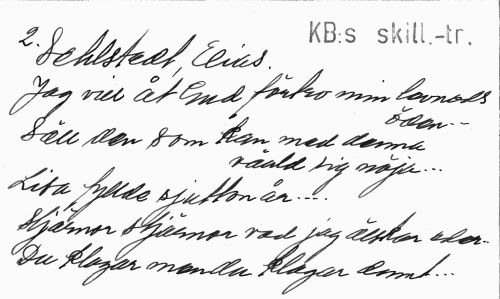 KB:s skill.-tr.
2. Sehlstedt, Elias.
Jag vill åt Gud förtro min levnads
öden...
Säll den som kan med denna
värld sig nöja...
Lisa fyllde sjutton år....
Stjärnor stjärnor vad jag älskar eder..
Du klagar man du klagar